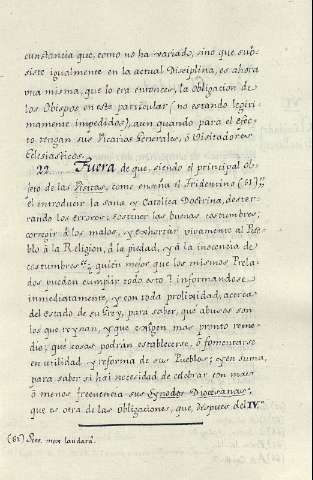 cunstancia que, como no ha variado, sino que sub-
siste igualmente en la actual Disciplina, es ahora
una misma, que lo era entonces, la obligacion de
los Obispos en este particular (no estando legiti-
mamente impedidos), aun quando para el efec-
to tengan sus Vicarios Generales, ò Visitadores
Eclesiasticos.
22. Fuera de que, siendo el principal ob-
jeto de las Visitas, como enseña el Tridentino (61)
el introducir la sana y Catolica Doctrina, dester-
rando los errores: sostener las buenas costumbres;
corregir à los malos, y exhortar vivamente al Pue-
blo à la Religion, à la piedad, y à la inocencia de
costumbres &c. quién mejor que los mismos Prela-
dos pueden cumplir todo esto? informandose
inmediatamente, y con toda prolixidad, acerca
del estado de su Grey, para saber, que abusos son
los que reynan, y que exigen mas pronto reme-
dio; qué cosas podrán establecerse, ò fomentarse
en utilidad, y reforma de sus Pueblos; y en suma,
para saber si hai necesidad de celebrar con mas,
ò menos frecuencia sus Synodos Diocesanas:
que es otra de las obligaciones, que, despues del IV.
(61) Sess. mox laudatâ.